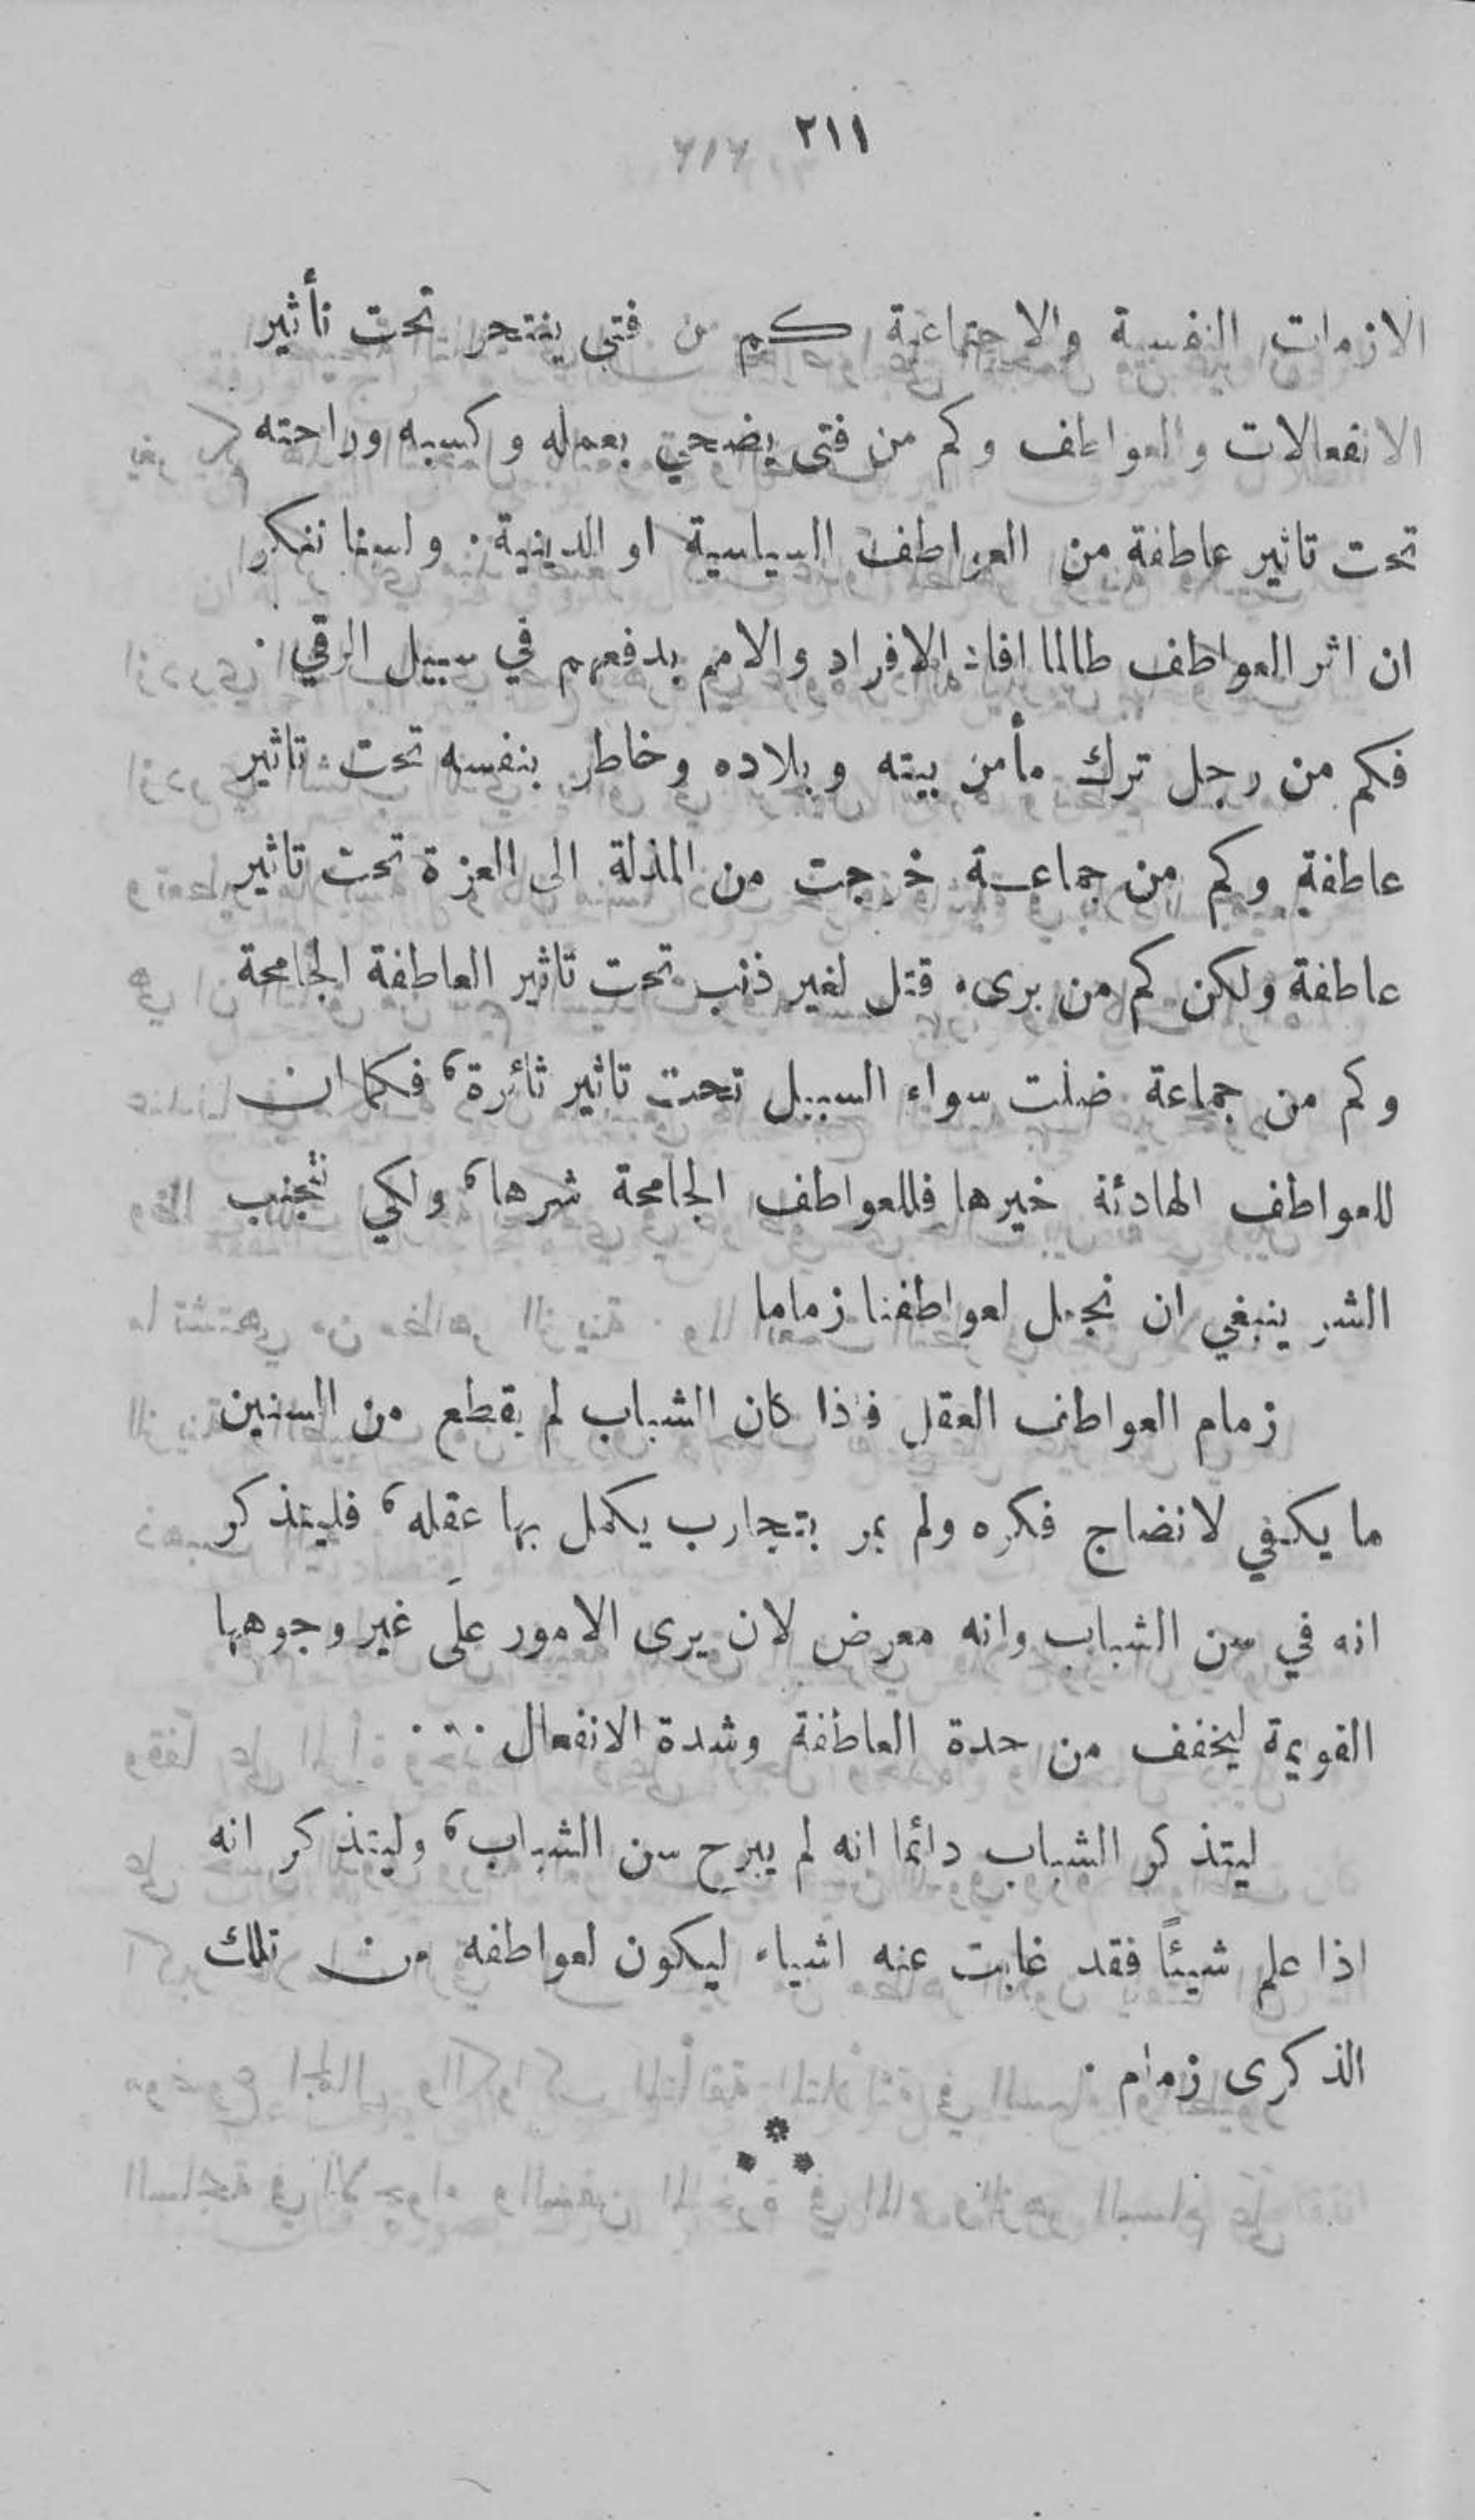 ٢١١
الازمات النفسية والاجتماعية كم من فتى ينتحر تحت تأثير
الانفعالات والعواطف وكم من فتى يضحي بعمله وكسبه وراحته
تحت تاثير عاطفة من العواطف السياسية او الدينية . ولسنا ننكر
ان اثر العواطف طالما افاد الافراد والامم بدفعهم في سبيل الرقي .
فكم من رجل ترك مأمن بيته وبلاده وخاطر بنفسه تحت تاثير
عاطفة وكم من جماعة خرجت من المذلة الى العزة تحت تاثير
عاطفة ولكن كم من برىء قتل لغير ذنب تحت تاثير العاطفة الجامحة
وكم من جماعة ضلت سواء السبيل تحت تاثير ثائرة ، فكما ان
للعواطف الهادئة خيرها فللعواطف الجامحة شرها ، ولكي نتجنب
الشر ينبغي ان نجعل لعواطفنا زماما
زمام العواطف العقل فاذا كان الشباب لم يقطع من السنين
ما يكفي لانضاج فكره ولم يمر بتجارب يكمل بها عقله ، فليتذكر
انه في سن الشباب وانه معرض لان يرى الامور على غير وجوهها
القويمة ليخفف من حدة العاطفة وشدة الانفعال . . .
ليتذكر الشباب دائما انه لم يبرح سن الشباب ، وليتذكر انه
اذا علم شيئاً فقد غابت عنه اشياء ليكون لعواطفه من تلك
الذكرى زمام .
***